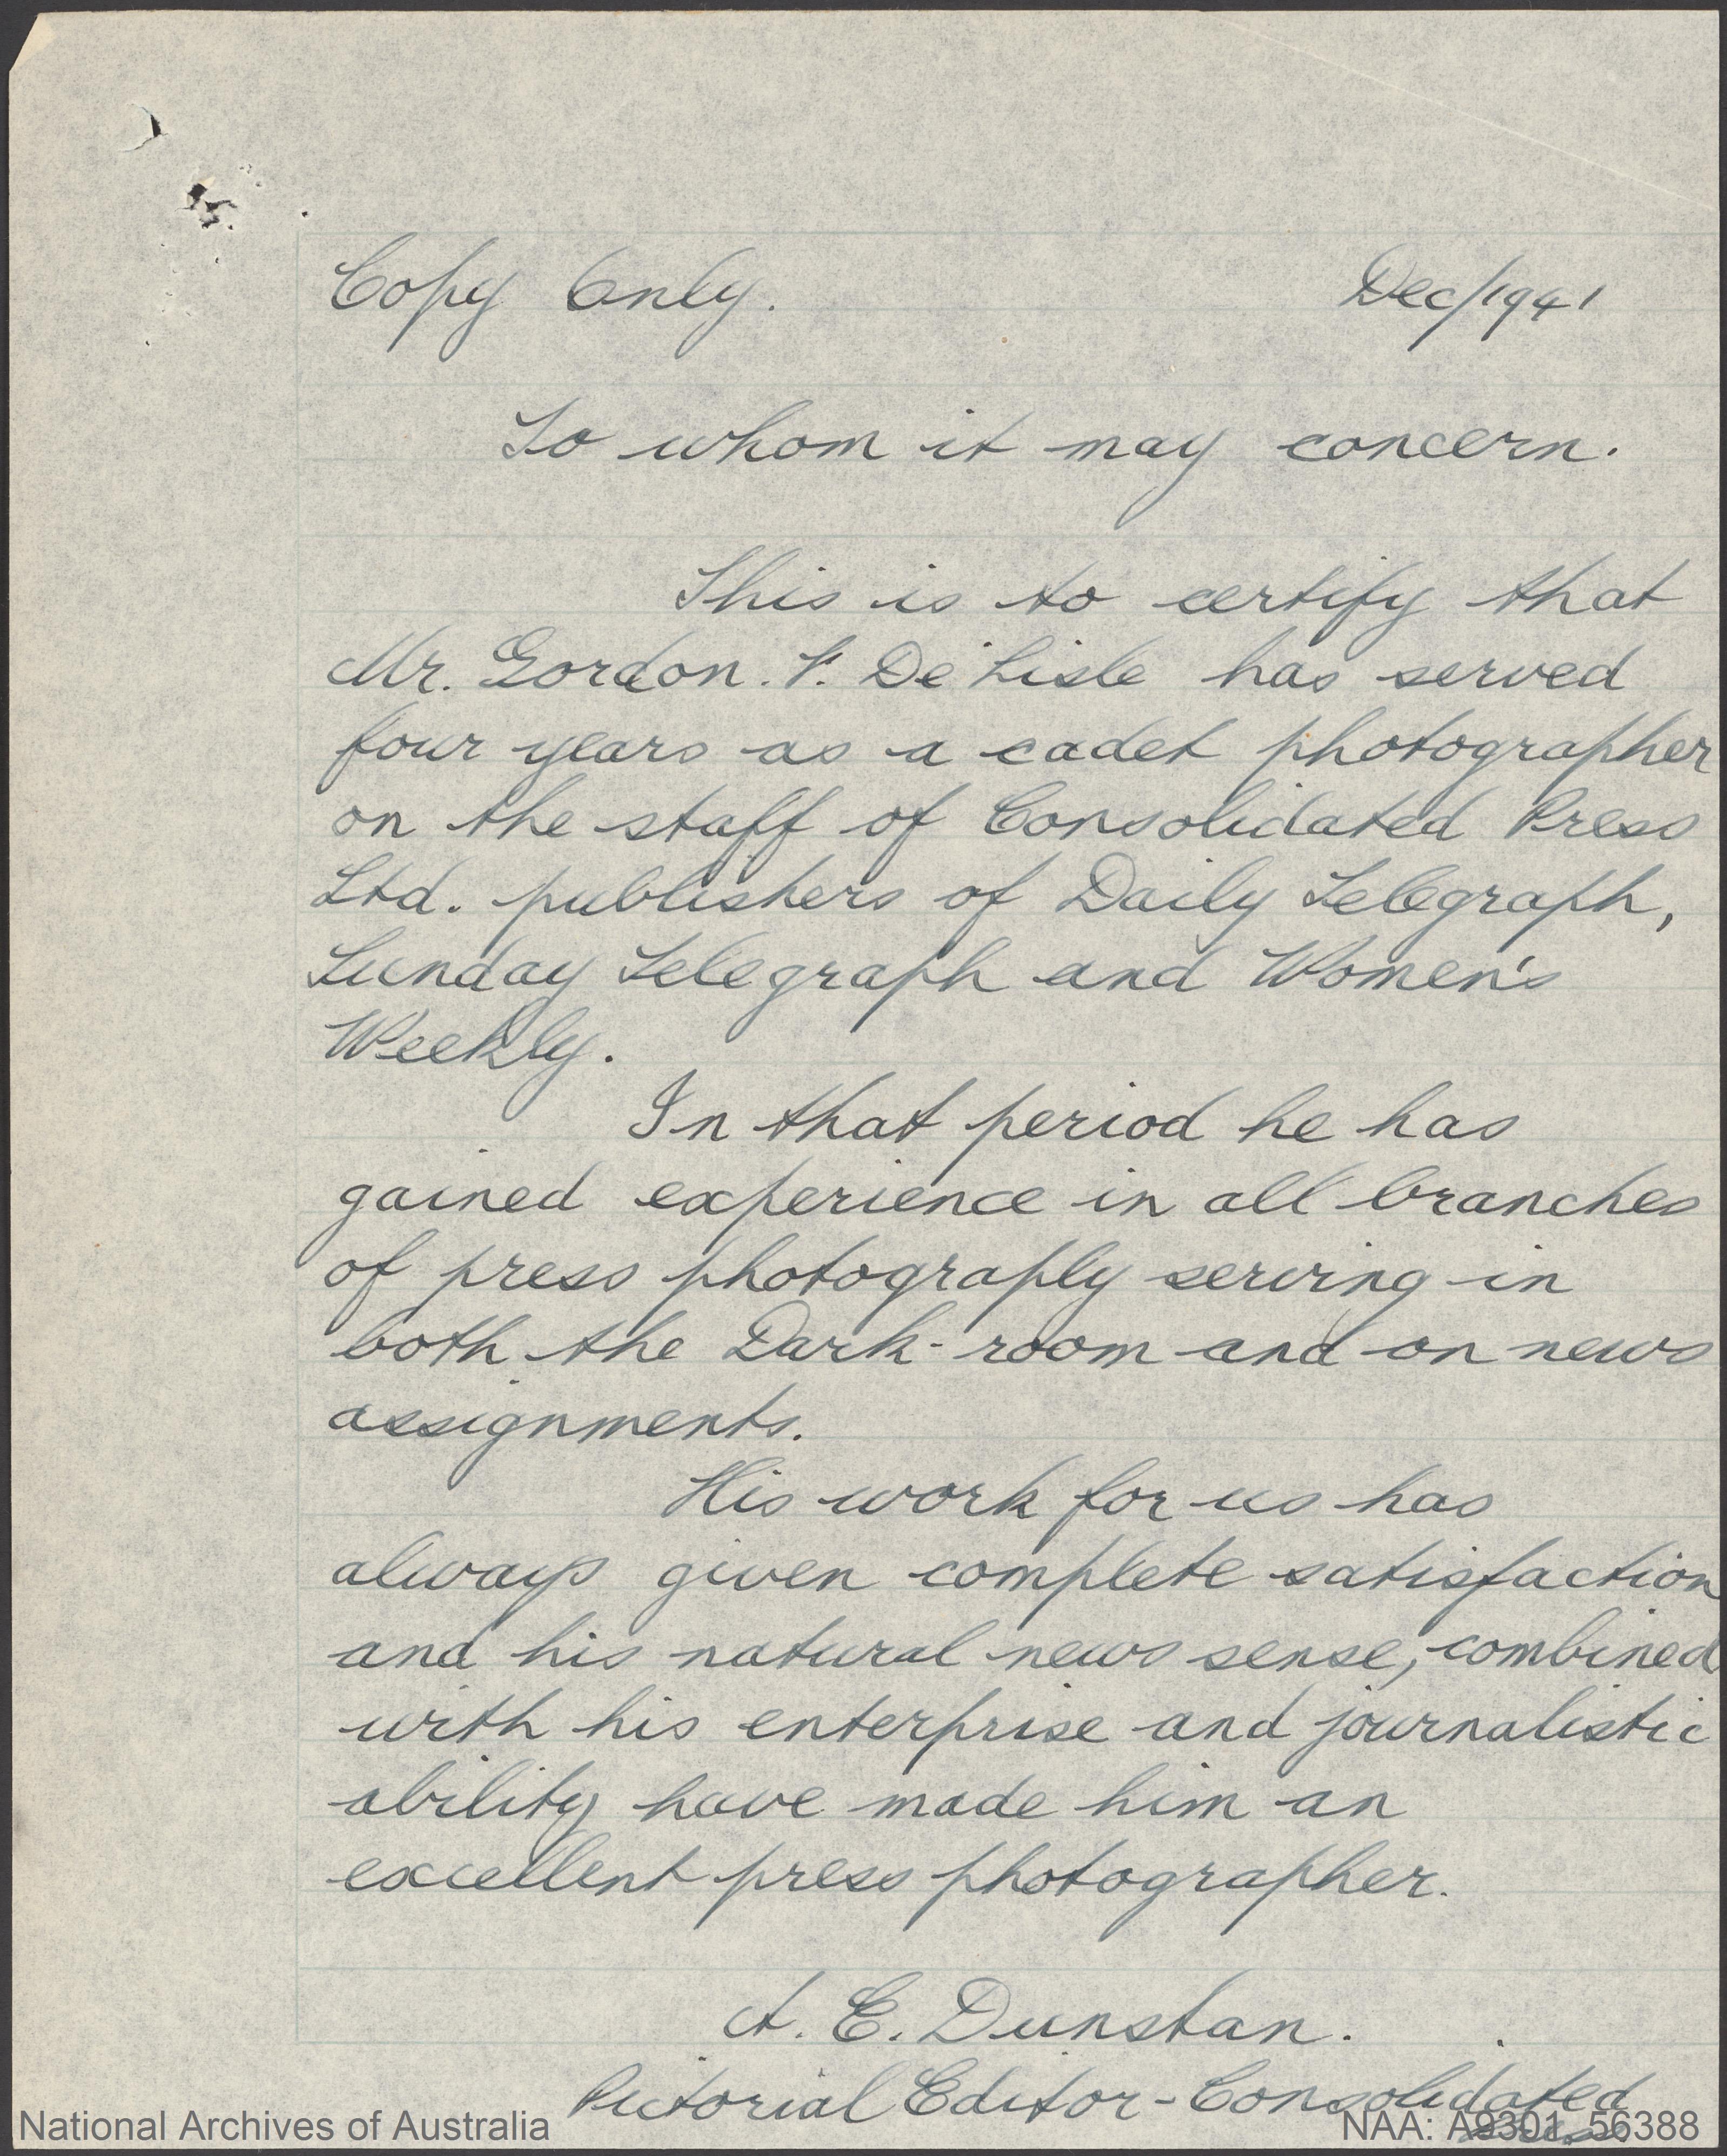 Copy Only. Dec/1941
To whom it may concern.
This is to certify that
Mr. Gordon. F. De Lisle has served
four years as a cadet photographer
on the staff of Consolidated Press
Ltd. publishers of Daily Telegraph,
Sunday Telegraph and Women's
Weekly.
In that period he has
gained experience in all branches
of press photography serving in
both the Dark-room and on news
assignments.
His work for us has
always given complete satisfaction
and his natural news sense, combined
with his enterprise and journalistic
ability have made him an
excellent press photographer.
A. E. Dunstan.
Pictorial Editor - Consolidated
Press.
National Archives of Australia NAA: A9301, 56388